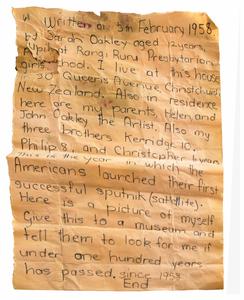 Written on 5th February 1958
by Sarah Oakley aged 12 years,
pupil at Rangi Ruru Presbyterian
girls school. I live at this house
30 Queens Avenue Christchurch
New Zealand. Also in residence
here are my parents, Helen, and
John Oakley the Artist. Also my
three brothers Kerridge 10,
Philip 8, and Christopher 4 years
This is the year in which the
Americans launched their first
successful sputnik (satellite).
Here is a picture of myself
Give this to a museum and
tell them to look for me if
under one hundred years
has passed, since 1958
End